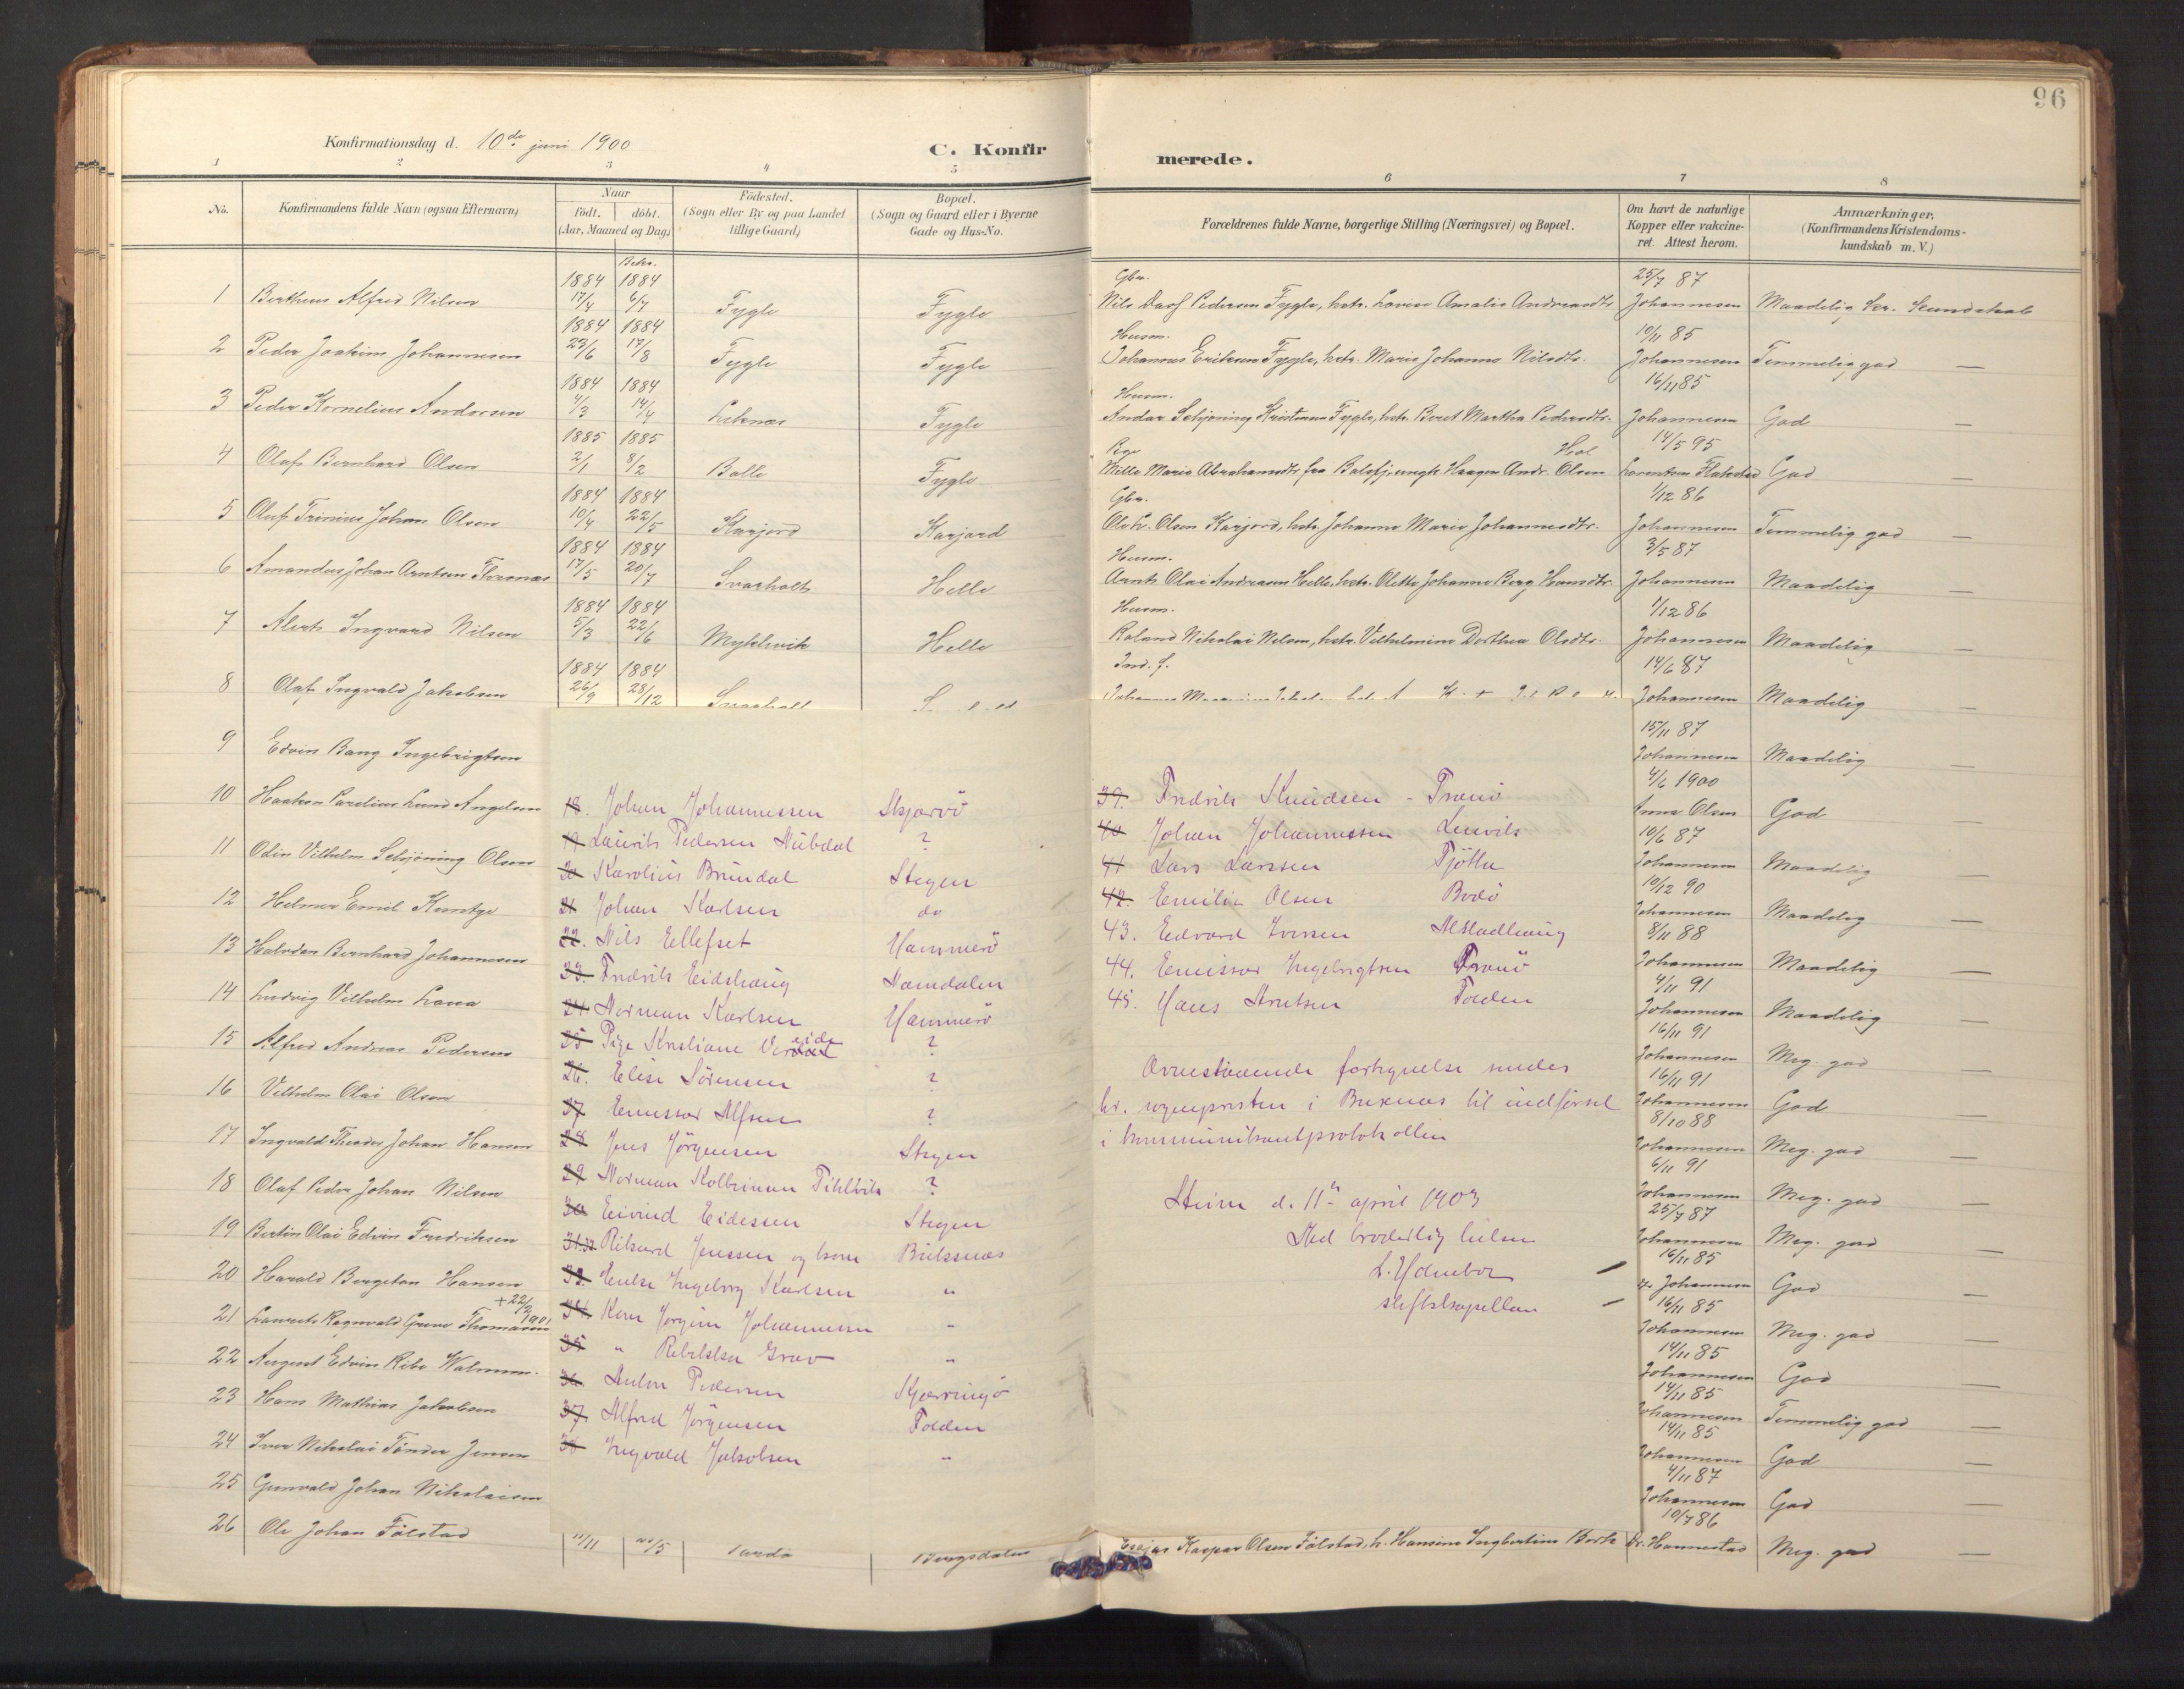 96
Konfirmationsdag d. 10de juni 1900
C. Konfirmerede.
1 2 3 4 5 6 7 8
No.
Konfirmandens fulde Navn (ogsaa Efternavn)
Naar
födt. döbt.
(Aar, Maaned og Dag)
Födested.
(Sogn eller By og paa Landet
tillige Gaard)
Bopæl.
(Sogn og Gaard eller i Byerne
Gade og Hus-No.
Forældrenes fulde Navne, borgerlige Stilling (Næringsvei) og Bopæl.
Om havt de naturlige
Kopper eller vakcine-
ret. Attest herom.
Anmærkninger.
(Konfirmandens Kristendoms-
kundskab m. V.)
1 Bertheus Alfred Nilsen 1884 17/4 1884 6/7 Fygle Fygle Gbr. Nils Pedersen Fygle, hstr. Lovise Amalie Andreasdtr. 25/7 87 Johannesen Maadelig kr. kundskab
2 Peder Joakim Johannesen 1884 23/6 1884 17/8 Fygle Fygle Husm. Johannes Eriksen Fygle, hstr. Marie Johanna Nilsdtr. 10/11 85 Johannesen Temmelig god —
3 Peder Kornelius Andersen 1884 4/3 1884 14/4 Leknes Fygle Husm. Andor Schjöning Kristensen Fygle, hstr. Beret Martha Pedersdtr. 16/11 85 Johannesen God —
4 Olaf Bernhard Olsen 1885 2/1 1885 8/2 Balle Fygle Pige Mille Marie Abrahamsdtr. fra Haagen Andr. Olsen Hol 14/5 95 Lorentsen Flakstad God
5 Oluf Trinius Johan Olsen 1884 10/4 1884 22/5 Karjord Karjord Gbr. Ole Olsen Karjord, hstr. Johanna Marie Johannesdtr. 1/12 86 Johannesen Temmelig god —
6 Amandus Johan Arntsen Thornæs 1884 17/5 1884 20/7 Svarholt Helle Husm. Arnt Olai Andreasen Helle, hstr. Olette Johanna Berg Hansdtr. 3/5 87 Johannesen Maadelig —
7 Alert Ingvard Nilsen 1884 5/3 1884 22/6 Myklevik Helle Husm. Roland Nikolai Nilsen, hstr. Vilhelmine Dorthea Olsdtr. 1/12 86 Johannesen Maadelig —
8 Olaf Ingvald Jakobsen 1884 26/9 1884 28/12 Svarholt Ind. f. 14/6 87 Johannesen Maadelig —
9 Edvin Bang Ingebrigtsen 15/11 87 Johannesen Maadelig —
10 Haakon Parelius Lund Angelsen 4/6 1900 Anna Olsen God —
11 Odin Vilhelm Schjöning Olsen 10/6 87 Johannesen Maadelig —
12 Helmer Emil Kuntze 10/12 90 Johannesen Maadelig —
13 Halvdan Bernhard Johannesen 8/11 88 Johannesen Maadelig —
14 Ludvig Vilhelm Lona 4/11 91 Johannesen Maadelig —
15 Alfred Andreas Pedersen 16/11 91 Johannesen Meg. god —
16 Vilhelm Olai Olsen 16/11 91 Johannesen God —
17 Ingvald Theodor Johan Hansen 8/10 88 Johannesen Meg. god —
18 Olaf Peder Johan Nilsen 6/11 91 Johannesen Meg. god —
19 Bertin Olai Edvin Fredriksen 25/7 87 Johannesen Meg. god —
20 Harald Bergeton Hansen 16/11 85 Johannesen God —
21 Laurits Ragnvald Greve Thomassen + 22/2 1901 16/11 85 Johannesen Meg. god —
22 August Edvin Ribe Walmann. 14/11 85 Johannesen God —
23 Hans Mathias Jakobsen 14/11 85 Johannesen Temmelig god —
24 Iver Nikolai Tönder Jensen 14/11 85 Johannesen God —
25 Gunvald Johan Nikolaisen 4/11 87 Johannesen God —
26 Ole Johan Fölstad Esajas Kaspar Olsen Fölstad, h. Hansine Ingbertine Bork 10/7 86 Dr. Hannestad Meg. god —
18. Johan Johannessen Skjærvö
19 Laurits Pedersen Nübdal ?
20 Karolius Bründal Stegen
21 Johan Karlsen do
22. Nils Ellefset Hammerö
23. Fredrik Eidshaug Namdalen
24 Norman Karlsen Hammerö
25 Pige Kristiane ?
26. Elise Sörensen ?
27 Emissær Alfsen ?
28 Jens Jörgensen Stegen
29 Norman Kolbeinsen ?
30 Eivind Eidessen Stegen
31.32 Rikard Jenssen og kone Buksnæs
33. Enke Ingeborg Karlsen "
34 Kone Jörgine Johannessen "
35 " Rebekka Grav "
36. Anton Pedersen Kjerringö
37. Alfred Jörgensen Folden
38 Ingvald Jakobsen "
39. Fredrik Knudsen - Tranö
40 Johan Johannessen Lenvik
41 Lars Larssen Tjötta
42. Emilie Olsen Bodö
43. Edvard Iversen Alstadhaug
44. Emissær Ingebrigtsen Tranö
45. Hans Arntsen Folden
Ovenstaaende fortegnelse sendes
hr. sogneprsten i Buxnæs til indförsel
i kommunikantprotokollen
Steine d. 11te april 1903
Med broderlig hilsen
stiftskapellan